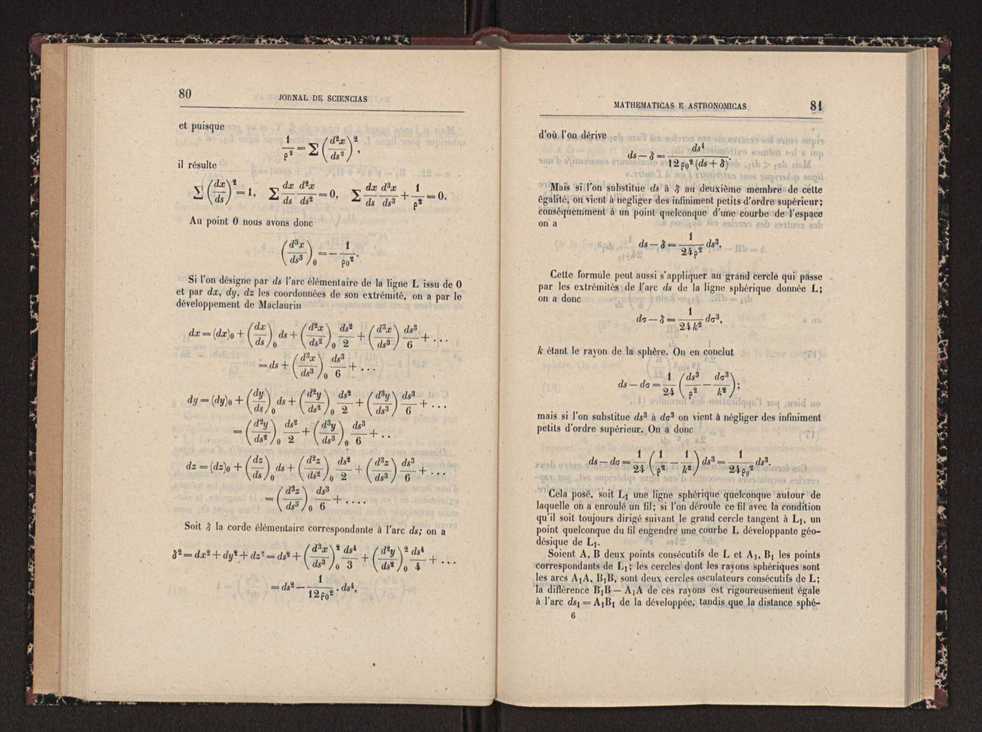 80
JORNAL DE SCIENCIAS
et puisque
1/ρ² = Σ (d²x/ds²)²,
il résulte
Σ (dx/ds)² = 1, Σ dx/ds d²x/ds² = 0, Σ dx/ds d³x/ds³ + 1/ρ² = 0.
Au point 0 nous avons donc
(d³x/ds³)₀ = − 1/ρ₀².
Si l'on désigne par ds l'arc élémentaire de la ligne L issu de 0
et par dx, dy, dz les coordonnées de son extrémité, on a par le
développement de Maclaurin
dx = (dx)₀ + (dx/ds)₀ ds + (d²x/ds²)₀ ds²/2 + (d³x/ds³)₀ ds³/6 + . . .
= ds + (d³x/ds³)₀ ds³/6 + . . .
dy = (dy)₀ + (dy/ds)₀ ds + (d²y/ds²)₀ ds²/2 + (d³y/ds³)₀ ds³/6 + . . .
= (d²y/ds²)₀ ds²/2 + (d³y/ds³)₀ ds³/6 + . .
dz = (dz)₀ + (dz/ds)₀ ds + (d²z/ds²)₀ ds²/2 + (d³z/ds³)₀ ds³/6 + . . .
= (d³z/ds³)₀ ds³/6 + . . . .
Soit δ la corde élémentaire correspondante à l'arc ds; on a
δ² = dx² + dy² + dz² = ds² + (d³x/ds³)₀² ds⁴/3 + (d²y/ds²)₀² ds⁴/4 + . . .
= ds² − 1/12ρ₀² . ds⁴,
MATHEMATICAS E ASTRONOMICAS
81
d'où l'on dérive
ds − δ = ds⁴/12ρ₀² (ds + δ).
Mais si l'on substitue ds à δ au deuxième membre de cette
égalité, on vient à negliger des infiniment petits d'ordre supérieur;
conséquemment à un point quelconque d'une courbe de l'espace
on a
ds − δ = 1/24ρ² ds³.
Cette formule peut aussi s'appliquer au grand cercle qui passe
par les extrémités de l'arc ds de la ligne sphérique donnée L;
on a donc
dσ − δ = 1/24k² dσ³,
k étant le rayon de la sphère. On en conclut
ds − dσ = 1/24 (ds³/ρ² − dσ³/k²);
mais si l'on substitue ds³ à dσ³ on vient à négliger des infiniment
petits d'ordre supérieur. On a donc
ds − dσ = 1/24 (1/ρ² − 1/k²) ds³ = 1/24ρg² ds³.
Cela posé, soit L₁ une ligne sphérique quelconque autour de
laquelle on a enroulé un fil; si l'on déroule ce fil avec la condition
qu'il soit toujours dirigé suivant le grand cercle tangent à L₁, un
point quelconque du fil engendre une courbe L développante géo-
désique de L₁.
Soient A, B deux points consécutifs de L et A₁, B₁ les points
correspondants de L₁; les cercles dont les rayons sphériques sont
les arcs A₁A, B₁B, sont deux cercles osculateurs consécutifs de L;
la différence B₁B − A₁A de ces rayons est rigoureusement égale
à l'arc ds₁ = A₁B₁ de la développée, tandis que la distance sphé-
6